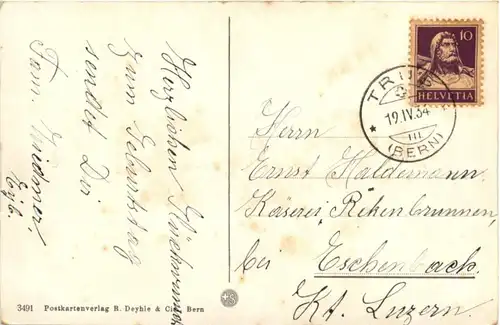 Herzlichen Glückwunsch
zum Geburtstag
sendet Dir
Fam. Wiedmer,
10
HELVETIA
TRUB
19.IV.34
III
(BERN)
Herrn
Ernst Haldemann
Käserei, Rikenbrunnen,
bei Eschenbach.
Kt. Luzern.
3491 Postkartenverlag R. Deyhle & Cie., Bern